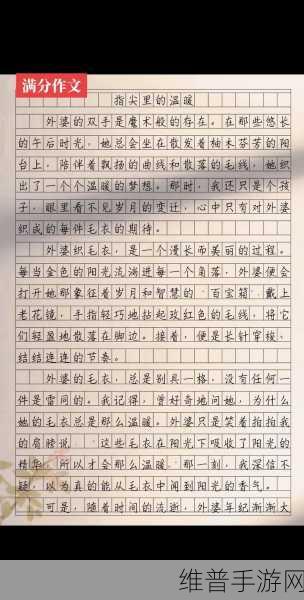 满分作文
指尖里的温暖
外婆的双手是魔术般的存在。在那些悠长
的午后时光，她总会坐在散发着柚木芬芳的阳
台上，陪伴着飘扬的曲线和散落的毛线，她织
出了一个个温暖的梦想。那时，我还只是个孩
子，眼里看不见岁月的变迁，心中只有对外婆
织成的每件毛衣的期待。
外婆织毛衣，是一个漫长而美丽的过程。
每当金色的阳光流淌进每一个角落，外婆便会
打开她那象征着岁月和智慧的“百宝箱”，戴上
老花镜，手指轻巧地拈起玫红色的毛线，将它
们轻盈地散落在脚边。接着，便是长针穿梭、
结结连连的节奏。
外婆的毛衣，总是别具一格，没有任何一
件是雷同的。我记得，曾好奇地问她，为什么
她的毛衣总是那么温暖。外婆只是笑着拍拍我
的肩膀说：“这些毛衣在阳光下吸收了阳光的
精华，所以才会那么温暖。”那一刻，我深信不
疑，以为真的能从毛衣中闻到阳光的香气。
可是，随着时间的流逝，外婆年纪渐渐大
维普手游网